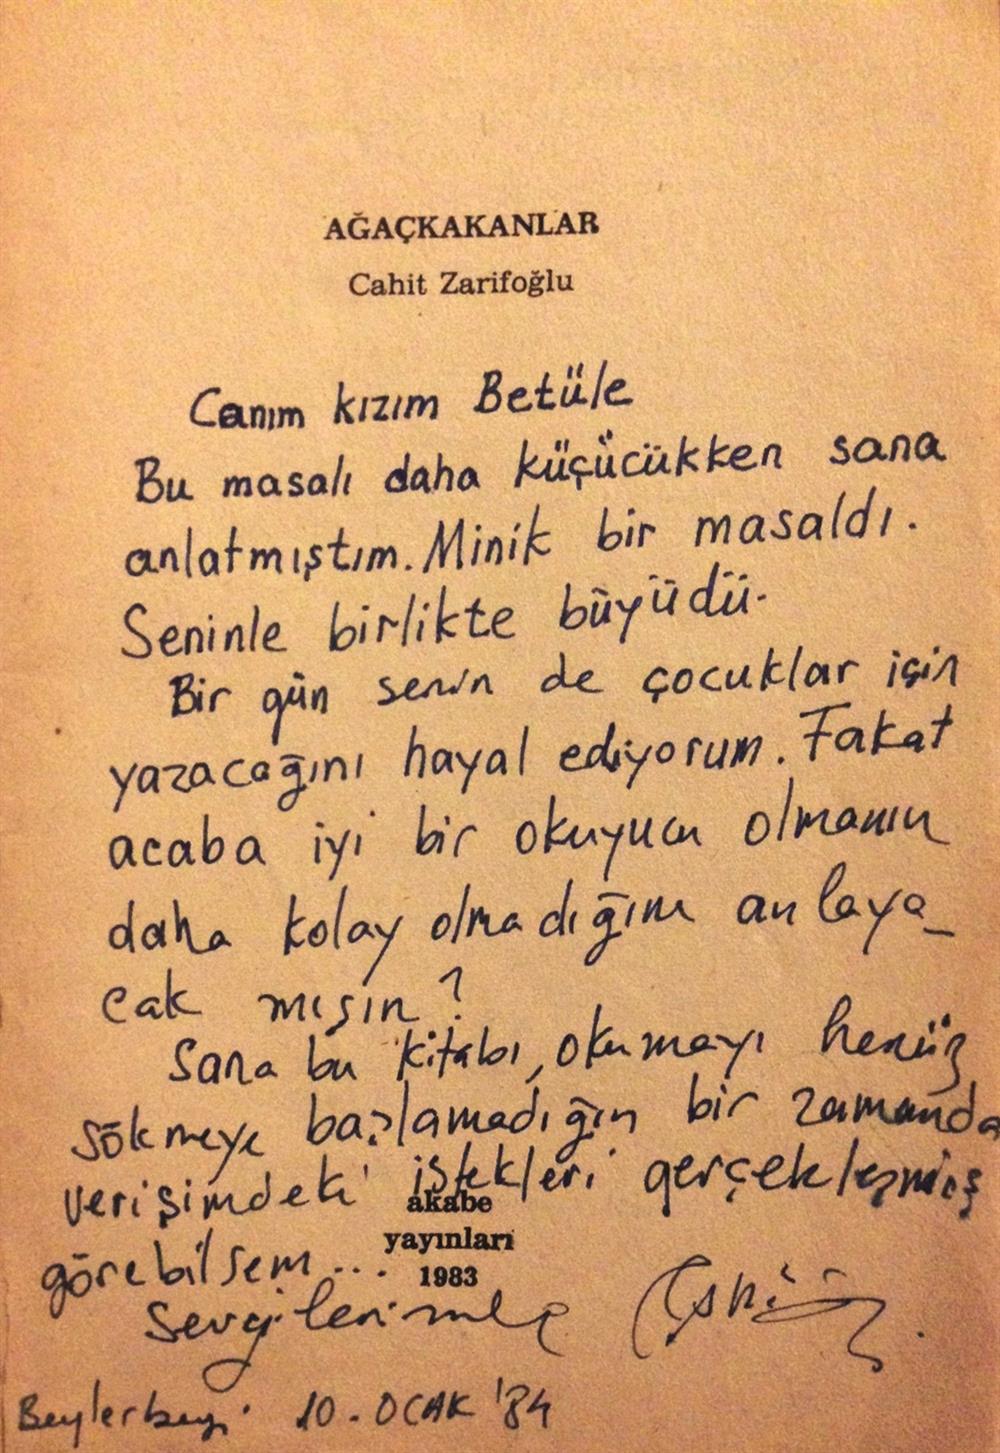 AĞAÇKAKANLAR
Cahit Zarifoğlu
Canım kızım Betüle
Bu masalı daha küçücükken sana
anlatmıştım. Minik bir masaldı.
Seninle birlikte büyüdü.
Bir gün senin de çocuklar için
yazacağını hayal ediyorum. Fakat
acaba iyi bir okuyucu olmanın
daha kolay olmadığını anlaya_
cak mısın?
Sana bu kitabı, okumayı henüz
sökmeye başlamadığın bir zamanda
verişimdeki istekleri gerçekleşmiş
görebilsem...
akabe
yayınları
1983
Sevgilerimle
Beylerbeyi 10.OCAK '84